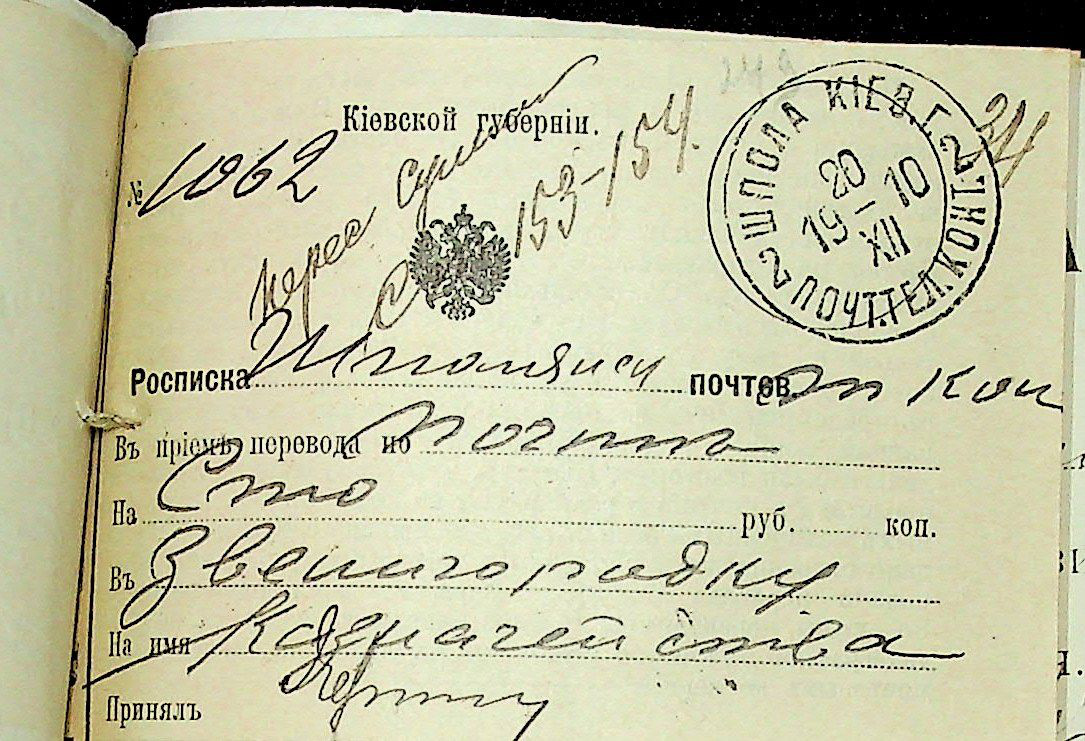 Кіевской губерніи.
№ 1062
153-154.
ШПОЛА КІЕВ. Г.
2 ПОЧТ.ТЕЛ.КОНТ. 2
20
19-10
XII
Росписка Шполянск почтов.
Въ пріемѣ перевода по почтѣ
На Сто руб. коп.
Въ Звенигородку
На имя Казначейства
Принялъ